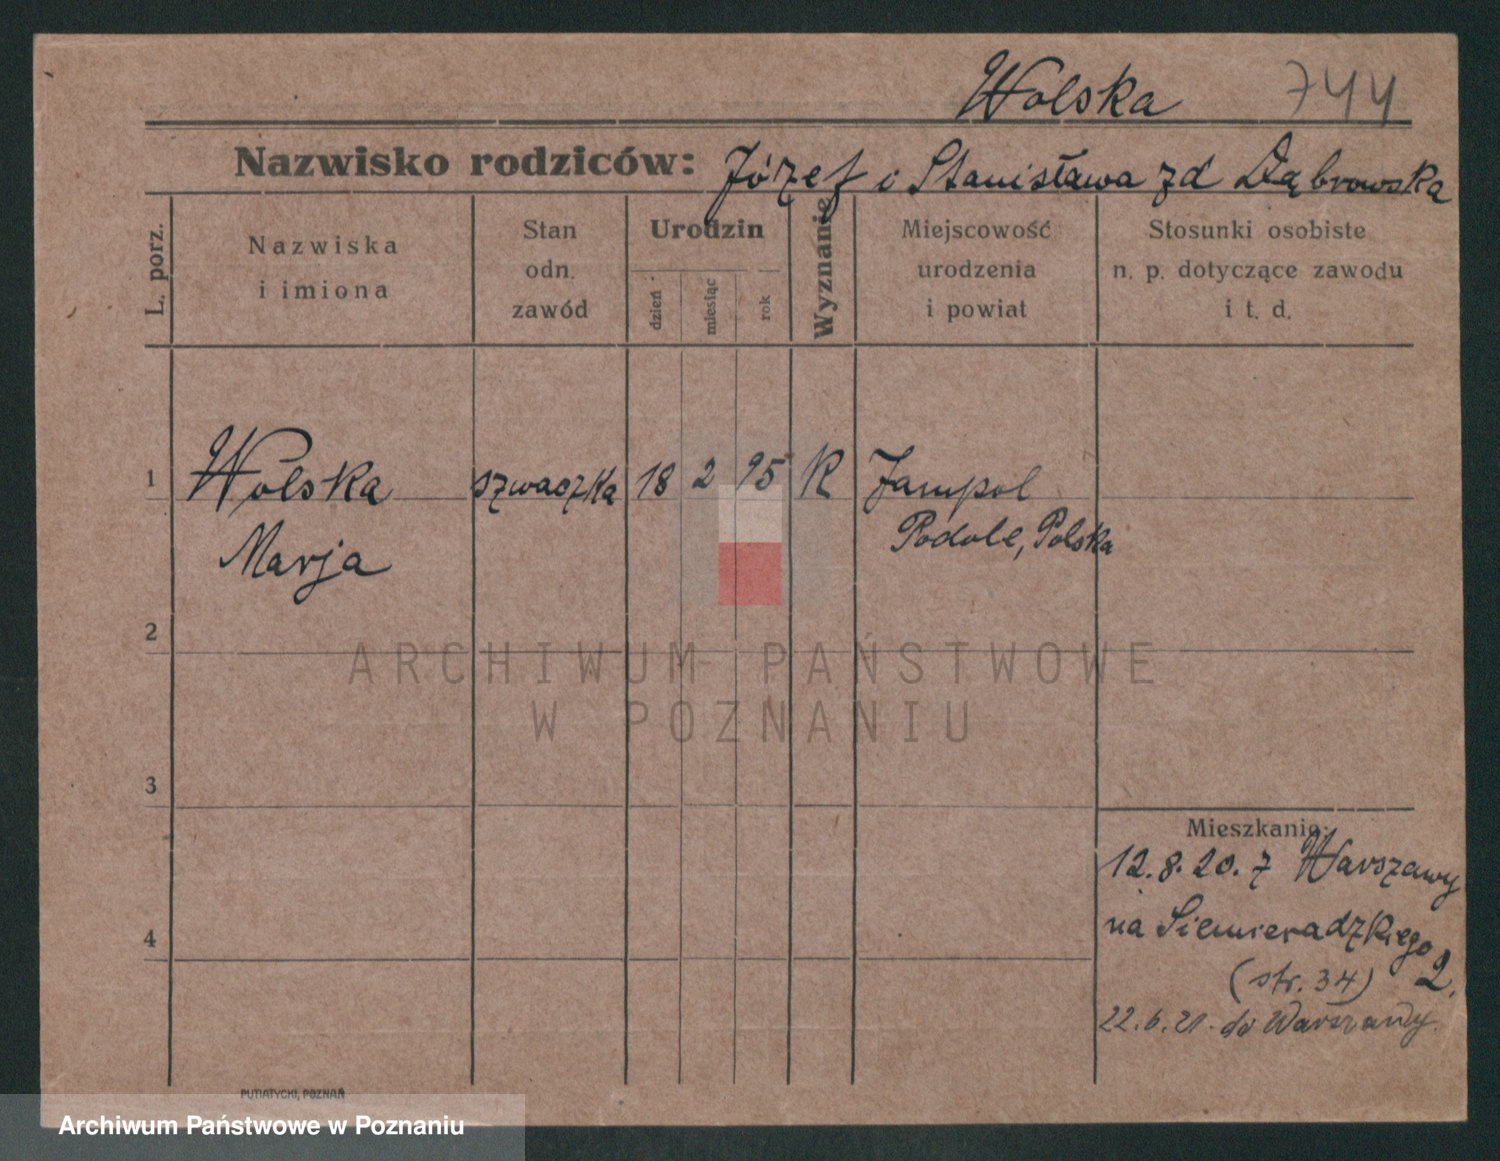 Wolska 744
Nazwisko rodziców: Józef i Stanisława zd Dąbrowska
L. porz.
Nazwiska
i imiona
Stan
odn.
zawód
Urodzin
dzień
miesiąc
rok
Wyznanie
Miejscowość
urodzenia
i powiat
Stosunki osobiste
n. p. dotyczące zawodu
i t. d.
1 Wolska szwaczka 18 2 95 K Jampol
Marja Podole, Polska
2
ARCHIWUM PAŃSTWOWE
W POZNANIU
3
Mieszkanie:
12.8.20. z Warszawy
na Siemieradzkiego 2.
4
(str. 34)
22.6.21. do Warszawy.
PUTIATYCKI, POZNAŃ
Archiwum Państwowe w Poznaniu